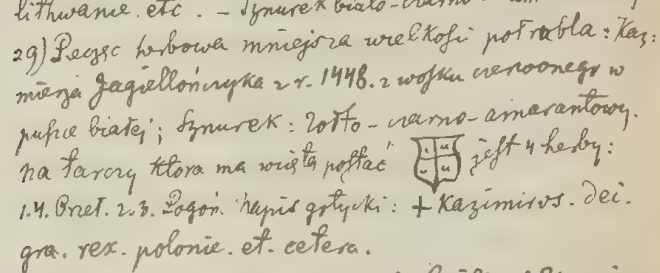 lithwanie. etc. – Sznurek biało-czarno-
29) Pieczęć herbowa mniejsza wielkości połrubla: Kaz:
mierza Jagiellończyka z r. 1448. z wosku czerwonego w
puszce białej; Sznurek: żołto-czarno-amarantowy.
na tarczy ktora ma wciętą postać jest 4 herby:
1.4. Orzeł. 2.3. Pogoń. Napis gotycki: + Kazimirvs. dei.
gra. rex. polonie. et. cetera.